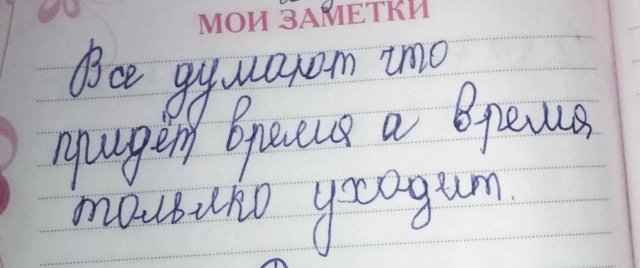 МОИ ЗАМЕТКИ
Все думают что
придёт время а время
только уходит.